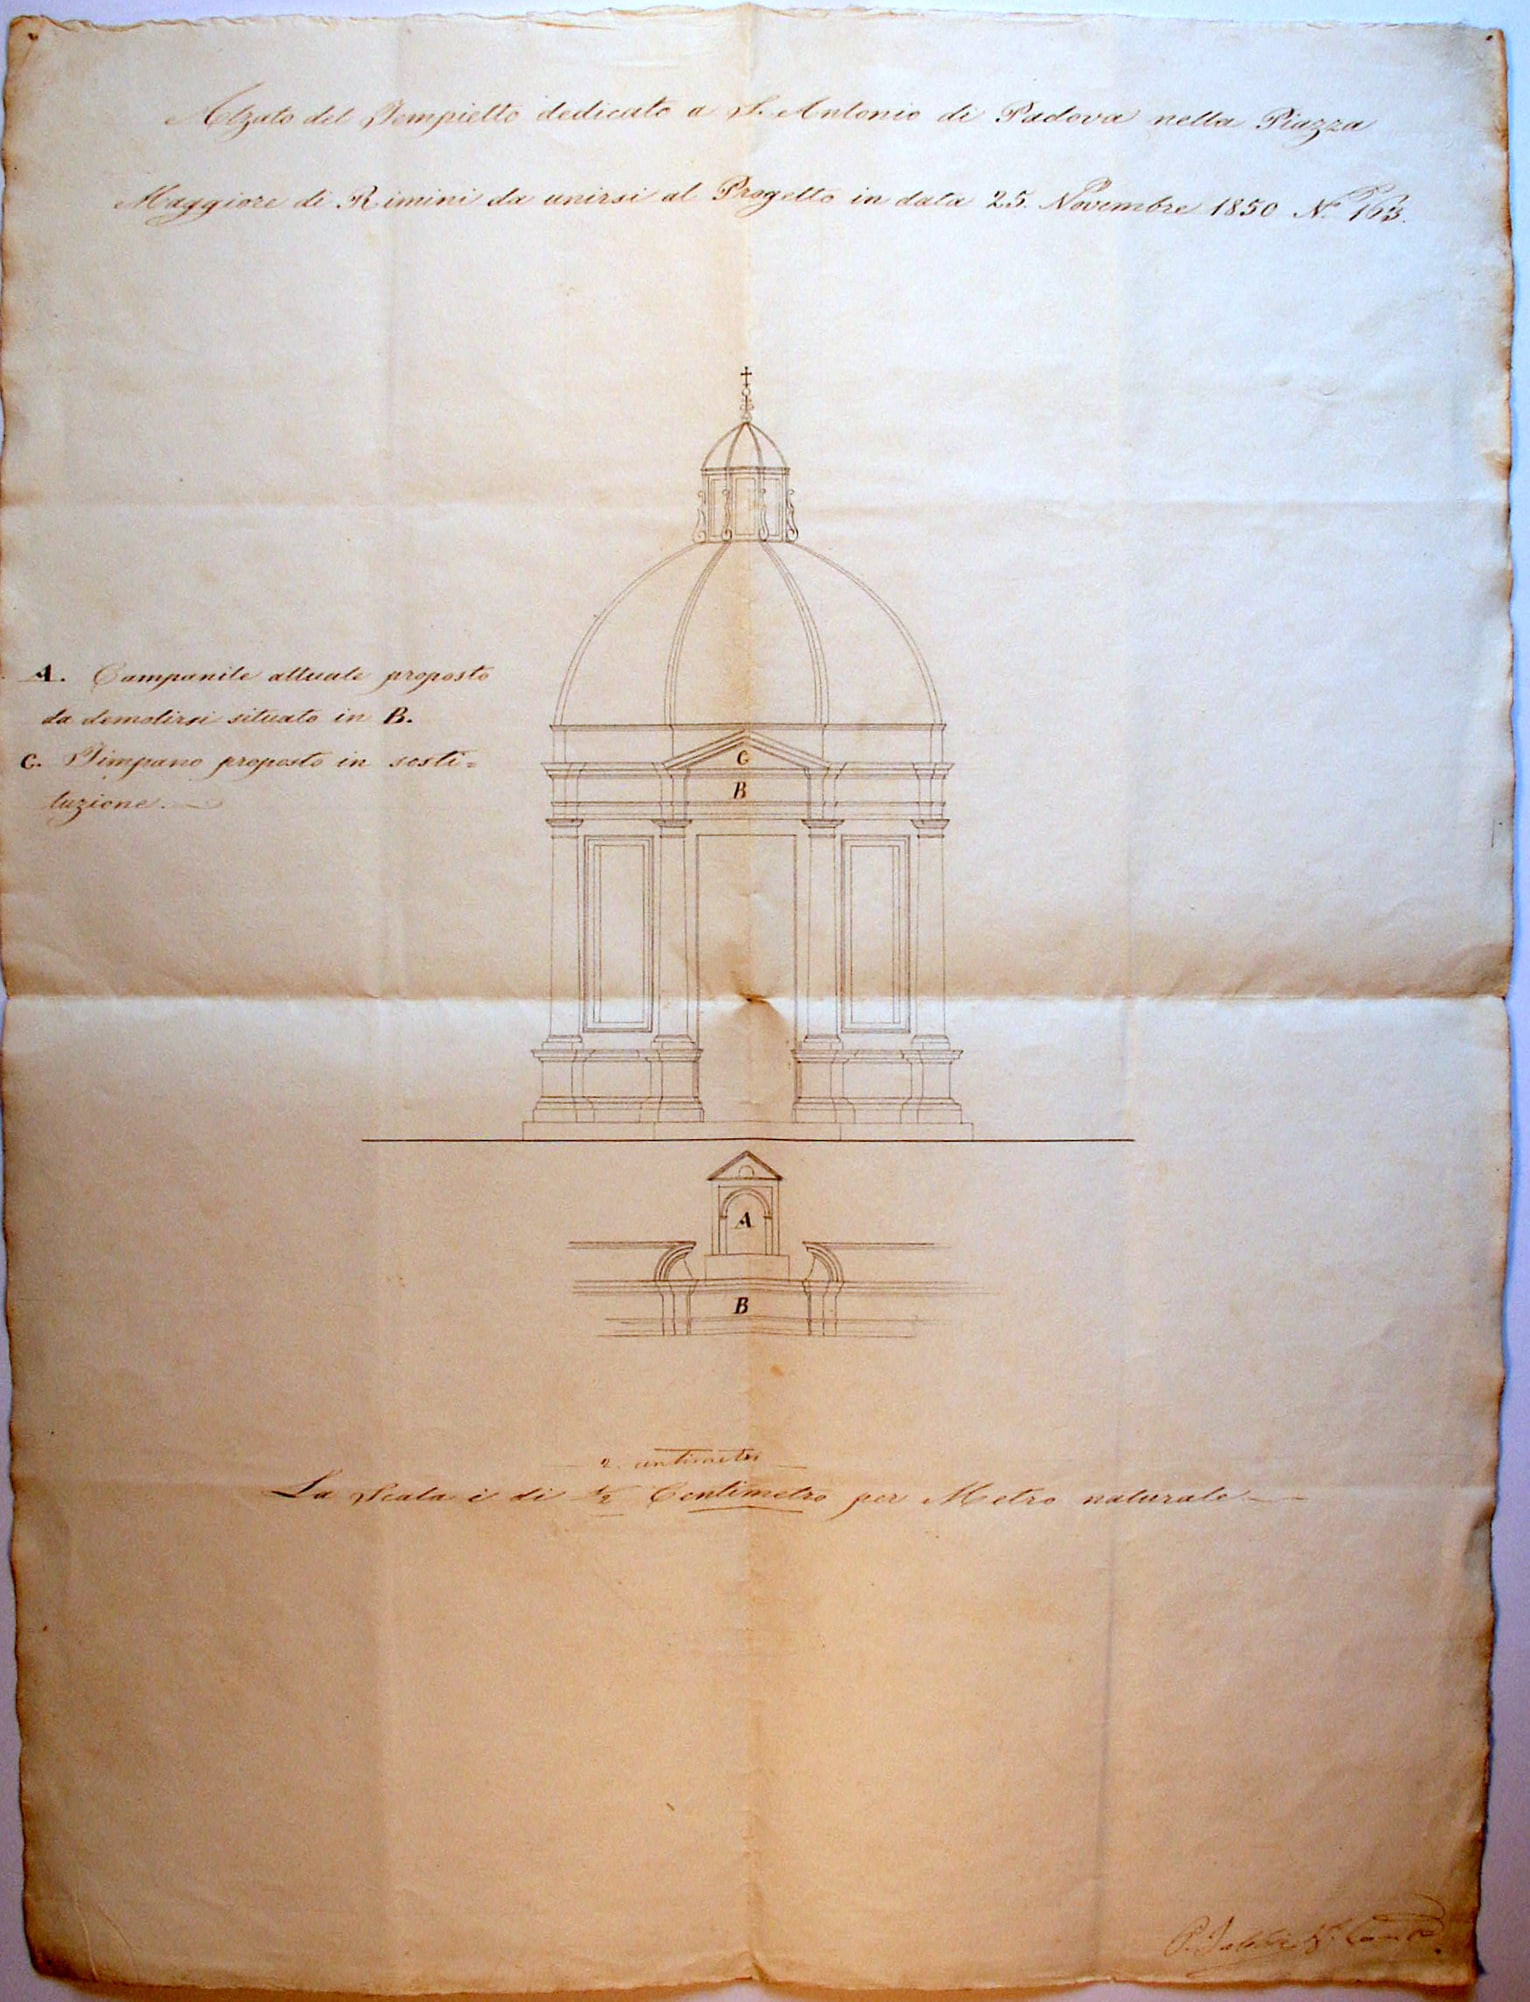 Alzato del Tempietto dedicato a S. Antonio di Padova nella Piazza
Maggiore di Rimini da unirsi al Progetto in data 25. Novembre 1850 N.º 163.
A. Campanile attuale proposto
da demolirsi situato in B.
C. Timpano proposto in sosti=
tuzione.
C
B
A
B
2. centimetri
La Scala è di 1/2 Centimetro per Metro naturale